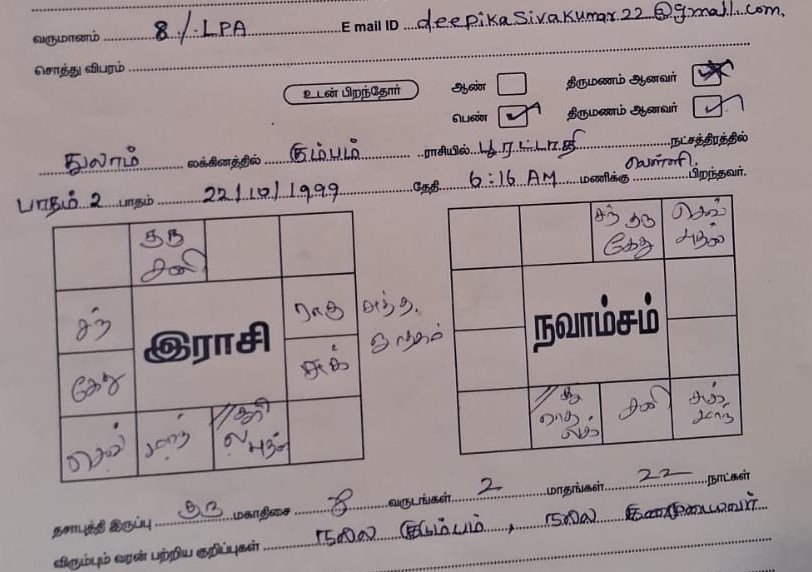 வருமானம் 8/. LPA E mail ID deepikasivakumar22@gmail.com.
சொத்து விபரம்
உடன் பிறந்தோர் ஆண் திருமணம் ஆனவர்
பெண் திருமணம் ஆனவர்
துலாம் லக்கினத்தில் கும்பம் ராசியில் பூரட்டாதி நட்சத்திரத்தில்
பாதம் 2 பாதம் 22/10/1999 தேதி 6:16 AM மணிக்கு வெள்ளி பிறந்தவர்.
குரு சனி
சந்
ராகு சுத்த ஜாதகம்
இராசி
கேது
சுக்
செவ் மாந் சூரி ல புதன்
சந் குரு கேது செவ் புதன்
நவாம்சம்
சூ ராகு லக் சனி சுக் மாந்
தசாபுத்தி இருப்பு குரு மகாதிசை 8 வருடங்கள் 2 மாதங்கள் 22 நாட்கள்
விரும்பும் வரன் பற்றிய குறிப்புகள் நல்ல குடும்பம், நல்ல குணமுடையவர்